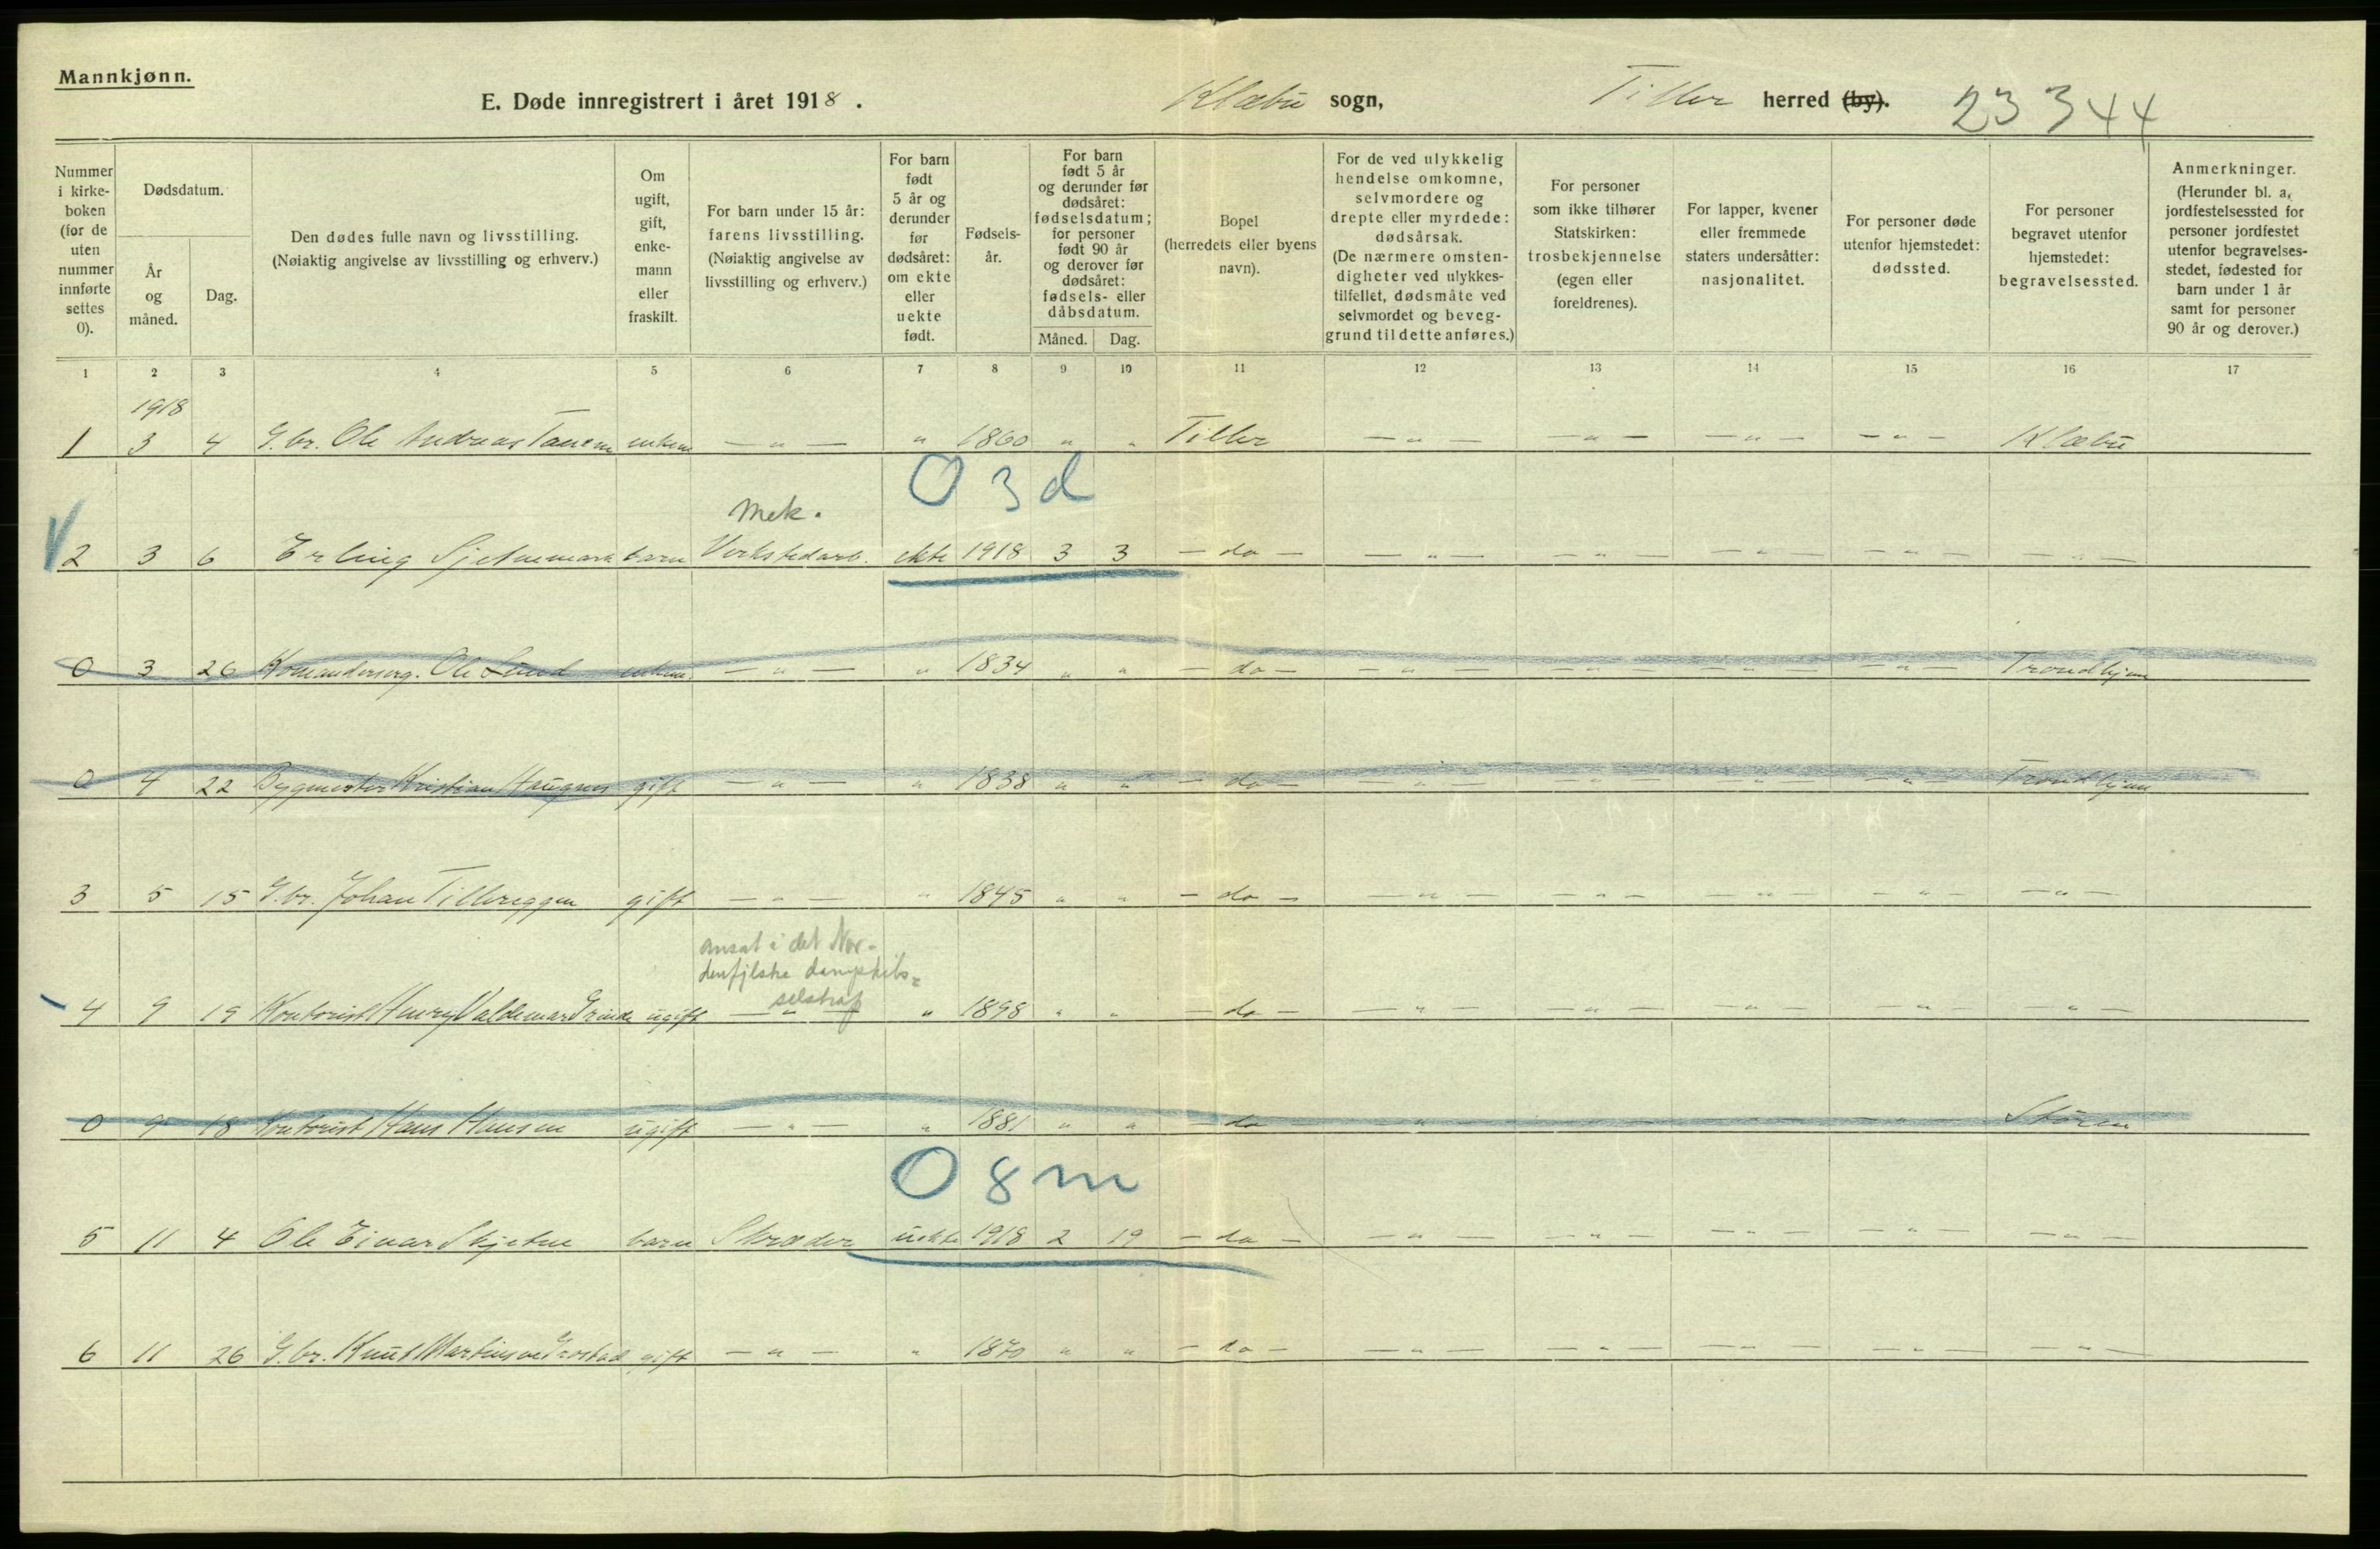 Mannkjønn.
E. Døde innregistrert i året 1918. Klæbu sogn, Tiller herred (by). 23344
Nummer i kirke-boken (for de uten nummer innførte settes 0).
Dødsdatum.
År og måned.
Dag.
Den dødes fulle navn og livsstilling.
(Nøiaktig angivelse av livsstilling og erhverv.)
Om ugift, gift, enke-mann eller fraskilt.
For barn under 15 år: farens livsstilling.
(Nøiaktig angivelse av livsstilling og erhverv.)
For barn født 5 år og derunder før dødsåret: om ekte eller uekte født.
Fødsels-år.
For barn født 5 år og derunder før dødsåret: fødselsdatum; for personer født 90 år og derover før dødsåret: fødsels- eller dåbsdatum.
Måned. Dag.
Bopel (herredets eller byens navn).
For de ved ulykkelig hendelse omkomne, selvmordere og drepte eller myrdede: dødsårsak.
(De nærmere omsten-digheter ved ulykkes-tilfellet, dødsmåte ved selvmordet og beveg-grund til dette anføres.)
For personer som ikke tilhører Statskirken: trosbekjennelse (egen eller foreldrenes).
For lapper, kvener eller fremmede staters undersåtter: nasjonalitet.
For personer døde utenfor hjemstedet: dødssted.
For personer begravet utenfor hjemstedet: begravelsessted.
Anmerkninger.
(Herunder bl. a. jordfestelsessted for personer jordfestet utenfor begravelses-stedet, fødested for barn under 1 år samt for personer 90 år og derover.)
1 2 3 4 5 6 7 8 9 10 11 12 13 14 15 16 17
1918
1 3 4 G.br. Ole Andreas Tanem enkem — " — " 1860 " " Tiller — " — — " — — " — — " — Klæbu
0 3 d
Mek.
2 3 6 Erling Sjetnemark barn Verkstedarb. ekte 1918 3 3 — do — — " — — " — — " — — " — — " —
0 3 26 Komanderserg. Ole Lund enkem. — " — " 1834 " " — do — — " — — " — — " — — " — Trondhjem
0 4 22 Bygmester Kristian Haugnes gift — " — " 1838 " " — do — — " — — " — — " — — " — Trondhjem
3 5 15 G.br. Johan Tillereggen gift — " — " 1845 " " — do — — " — — " — — " — — " — — " —
ansat i det Nor-
denfjelske dampskibs=
selskap
4 9 19 Kontorist Henry Valdemar Grinde ugift — " — " 1898 " " — do — — " — — " — — " — — " — — " —
0 9 18 Kontorist Hans Hansen ugift — " — " 1881 " " — do — — " — — " — — " — — " — Støren
0 8 m
5 11 4 Ole Einar Skjetne barn Skræder uekte 1918 2 19 — do — — " — — " — — " — — " — — " —
6 11 26 G.br. Knut Martinsen gift — " — " 1870 " " — do — — " — — " — — " — — " — — " —